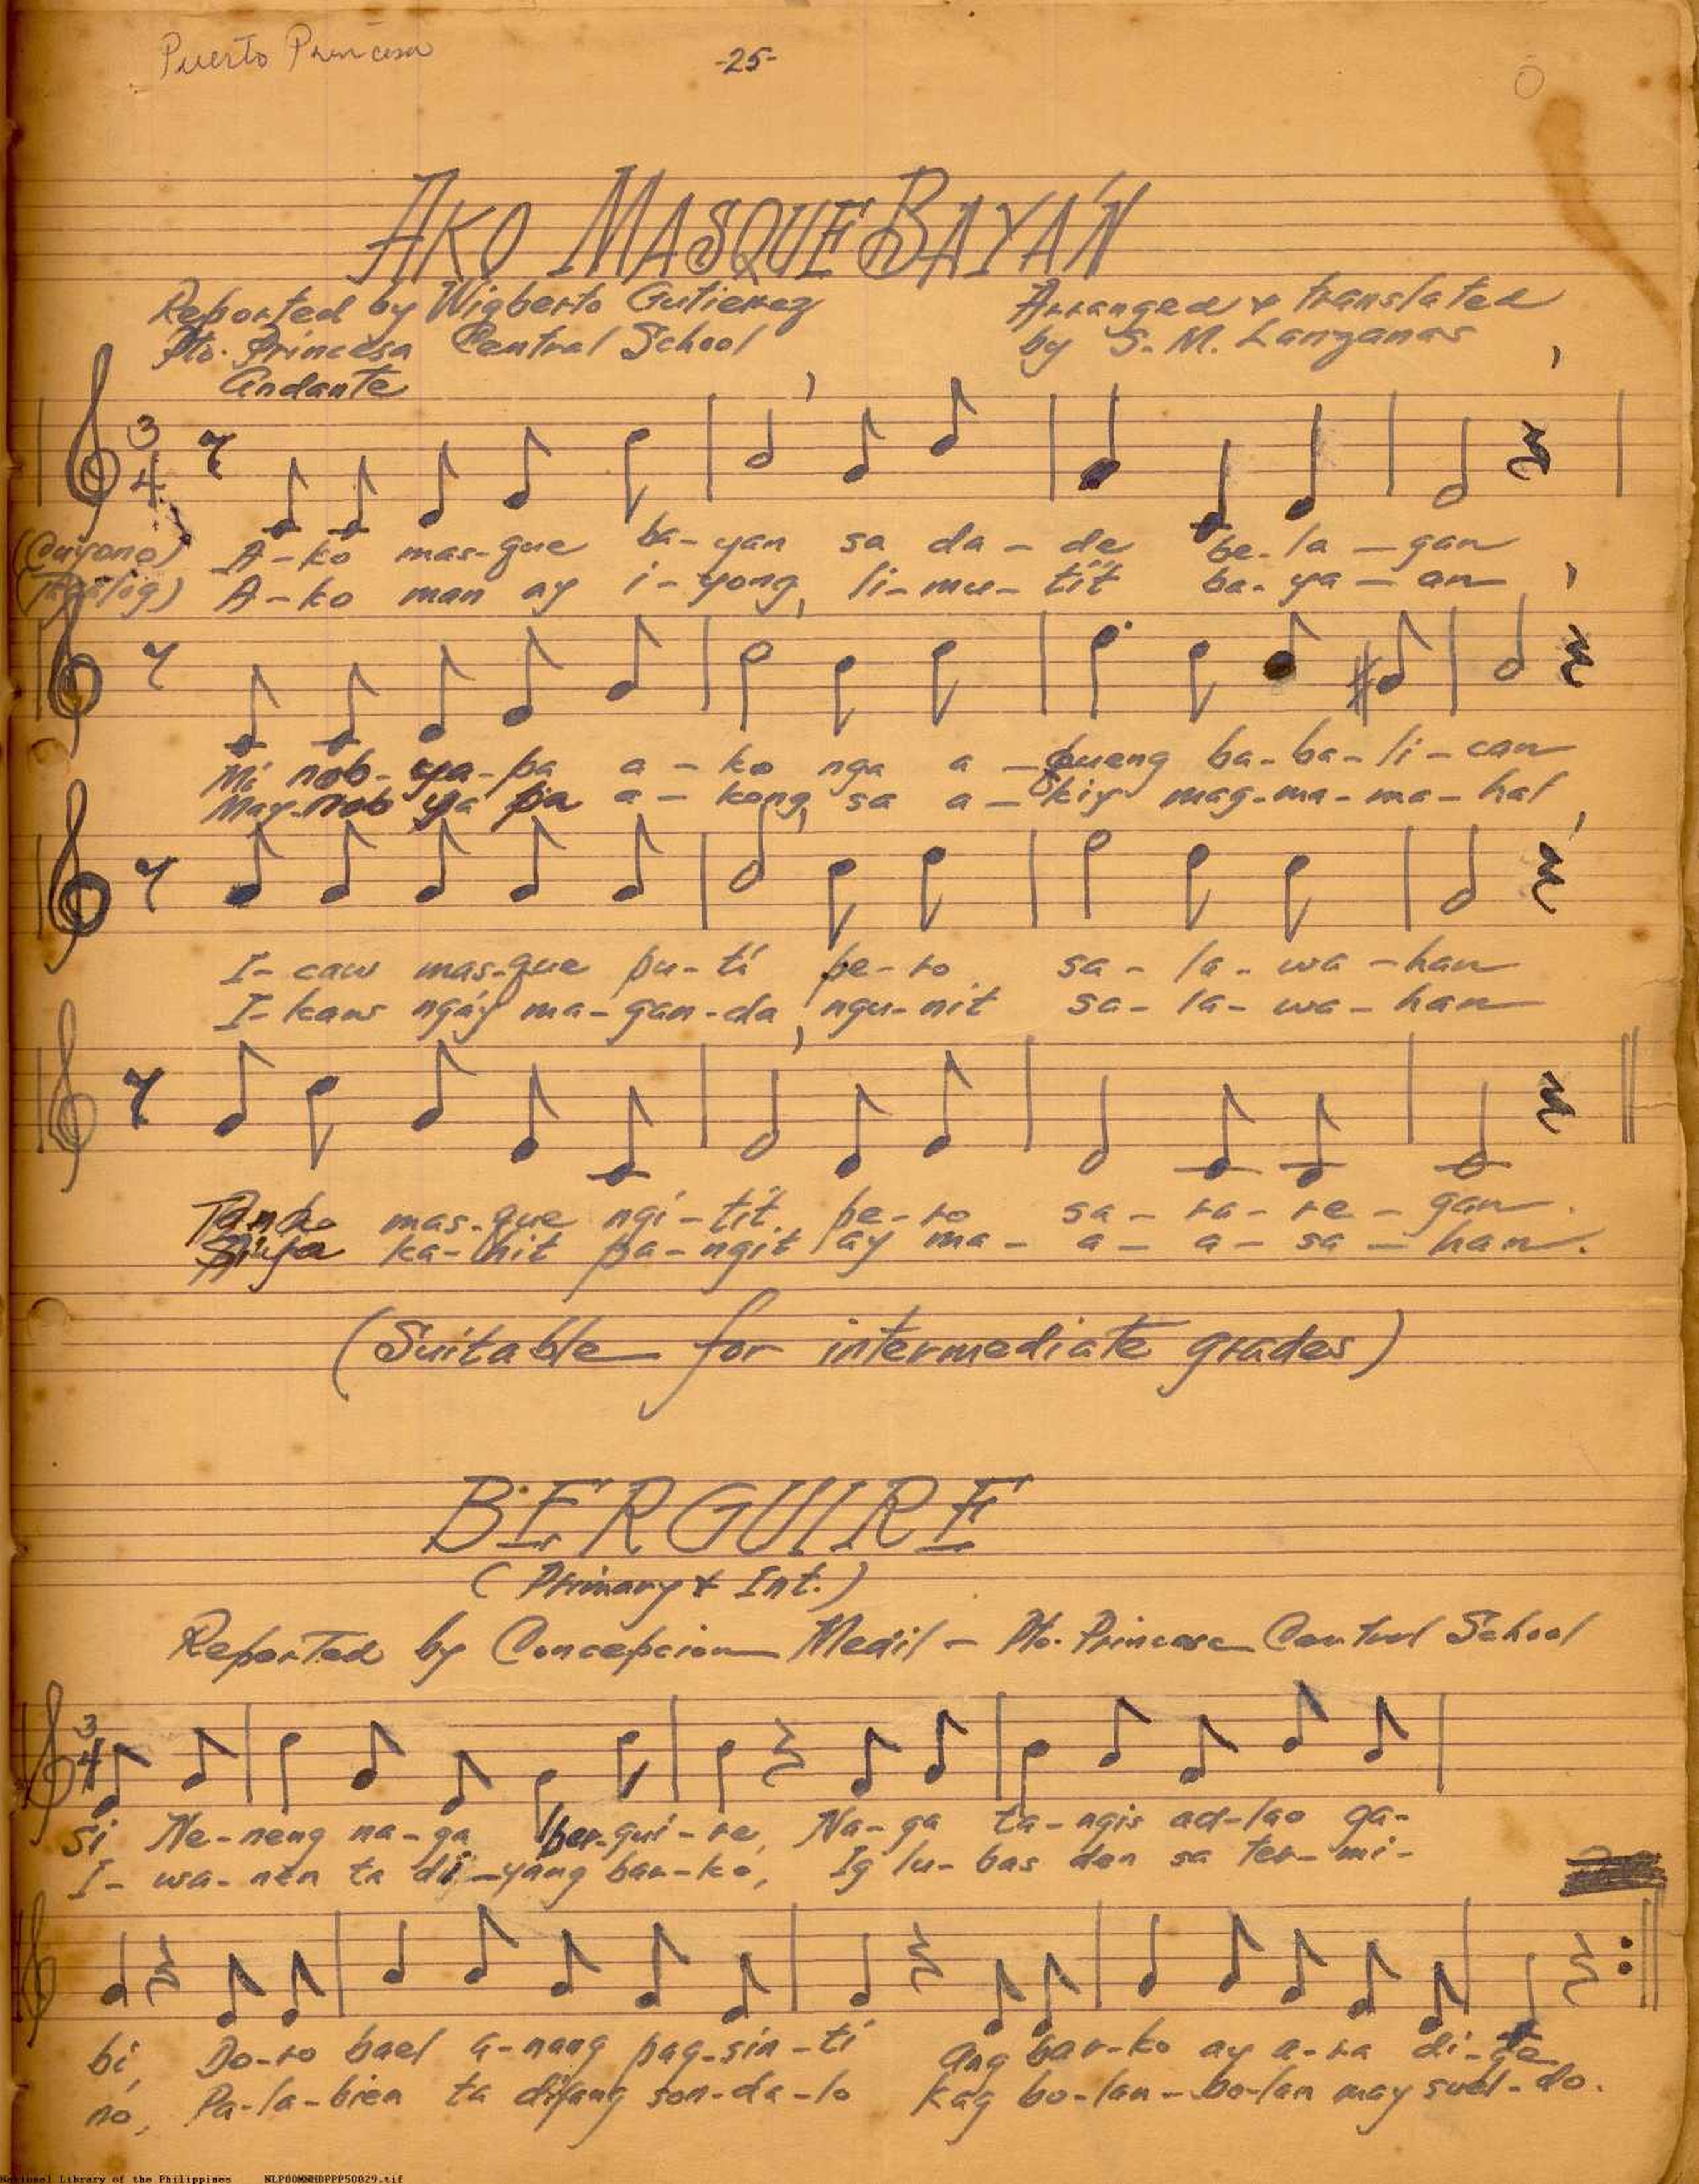 Puerto Princesa
-25-
AKO MASQUE BAYÁN
Reported by Wigberto Gutierrez
Pto. Princesa Central School
Arranged & translated
by S. M. Lanzanas
Andante
3
4
(Cuyono) A-ko mas-que ba-yan sa da-de be-la-gan
(Tagalog) A-ko man ay i-yong li-mu-tit ba-ya-an
Mi nob-ya-pa a-ko nga a-bueng ba-ba-li-can
May nob ya pa a-kong sa a-kiy mag-ma-ma-hal
I-caw mas-que pu-tí pe-ro sa-la-wa-han
I-kaw ngáy ma-gan-da, ngu-nit sa-la-wa-han
mas-que ngi-tit pe-ro sa-ra-re-gan.
Siya ka-hit pa-ngit ay ma-a-a-sa-han.
(Suitable for intermediate grades)
BERGUIRE
(Primary & Int.)
Reported by Concepcion - Pto. Princesa Central School
3
4
Si Ne-neng na-ga ber-gui-re, Na-ga ta-ngis ad-lao ga-
I-wa-nen ta di-yang bar-ko, Ig lu-bas den sa ter-mi-
bi, Do-ro bael a-nang pag-sin-ti Ang bar-ko ay a-ra di-
no, Pa-la-bien ta diyang son-da-lo Kag bo-lan-bo-lan may suel-do.
National Library of the Philippines NLPOOMNHDPPP50029.tif